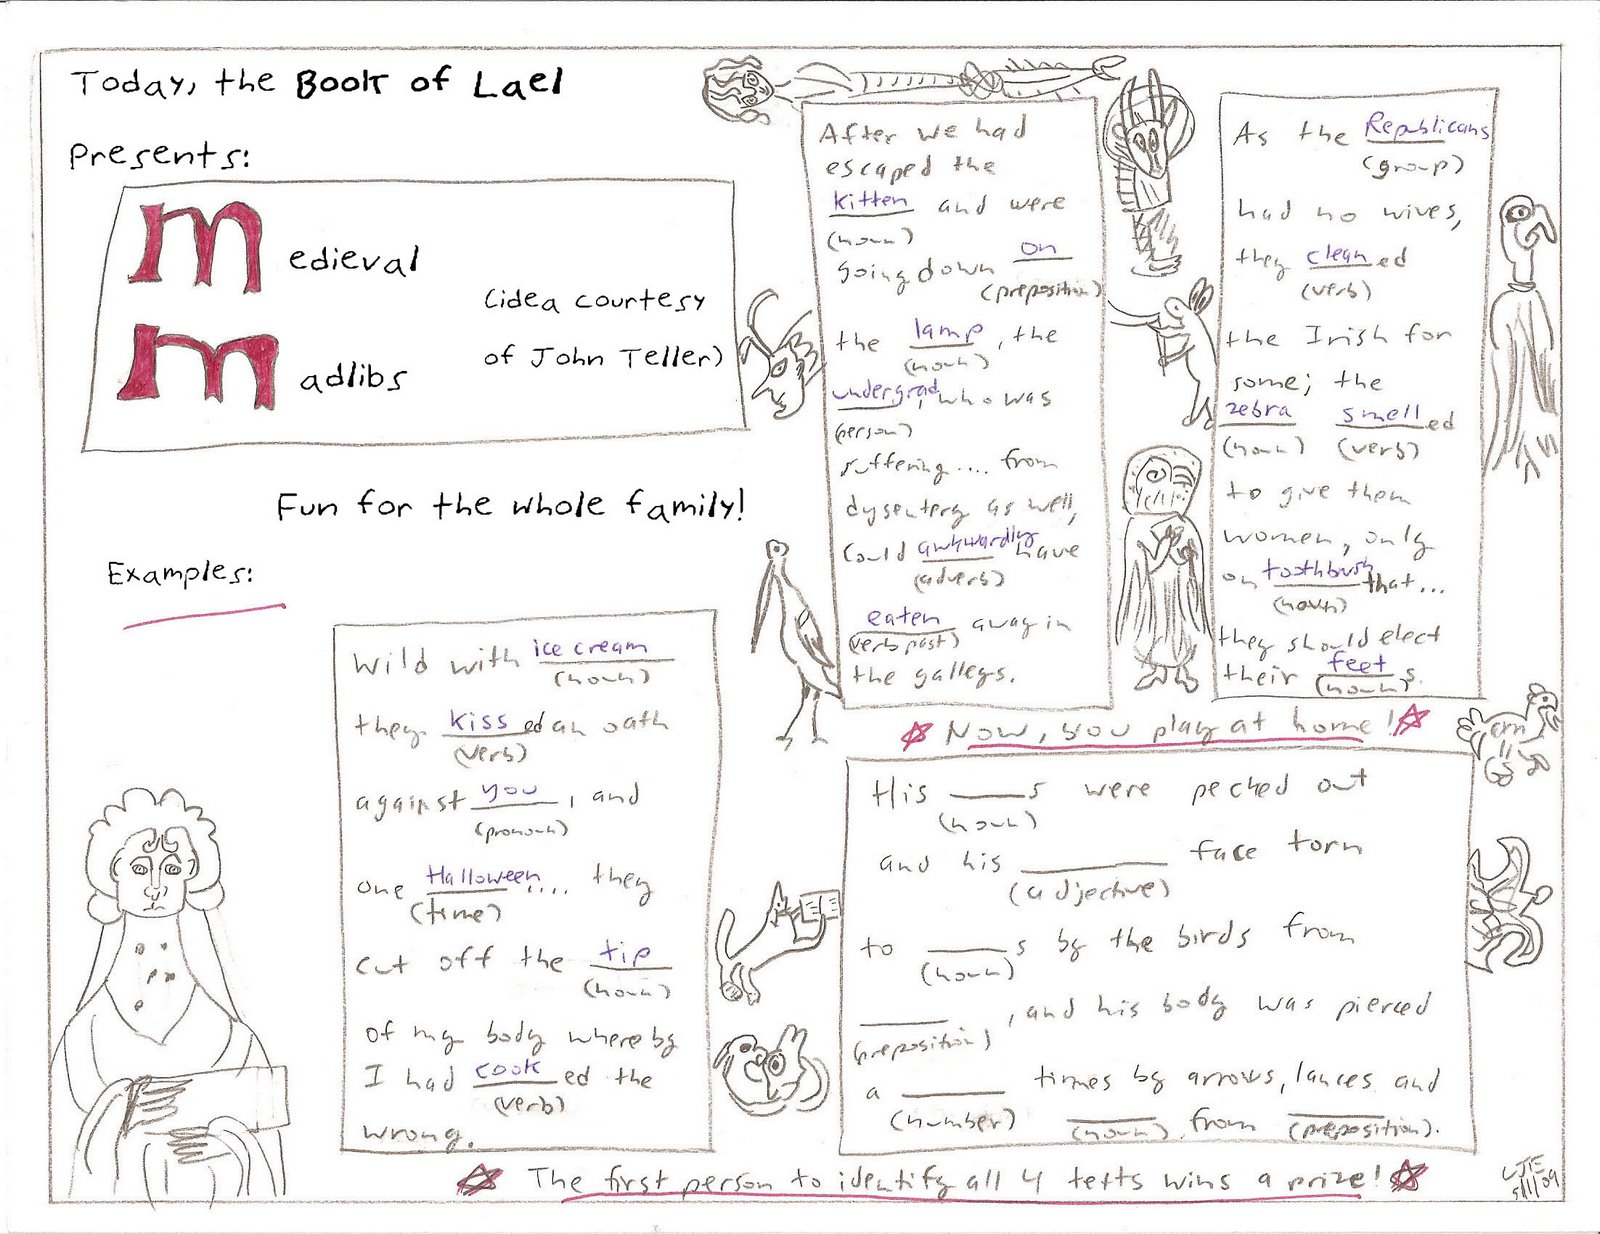 Today, the Book of Lael
Presents:
Medieval
Madlibs
(idea courtesy
of John Teller)
Fun for the whole family!
Examples:
Wild with ice cream
(noun)
they kissed an oath
(verb)
against you, and
(pronoun)
one Halloween.... they
(time)
cut off the tip
(noun)
of my body whereby
I had cooked the
(verb)
wrong.
After we had
escaped the
kitten and were
(noun)
going down on
(preposition)
the lamp, the
(noun)
undergrad, who was
(person)
suffering.... from
dysentery as well,
could awkwardly have
(adverb)
eaten away in
(verb past)
the galleys.
As the Republicans
(group)
had no wives,
they cleaned
(verb)
the Irish for
some; the
zebra smelled
(noun) (verb)
to give them
women, only
on toothbrush that...
(noun)
they should elect
their feets.
(noun)
Now, you play at home!
His ____s were pecked out
(noun)
and his ____ face torn
(adjective)
to ____s by the birds from
(noun)
____, and his body was pierced
(preposition)
a ____ times by arrows, lances and
(number)
____ from ____.
(noun) (preposition)
The first person to identify all 4 texts wins a prize!
LJE
5/1/09